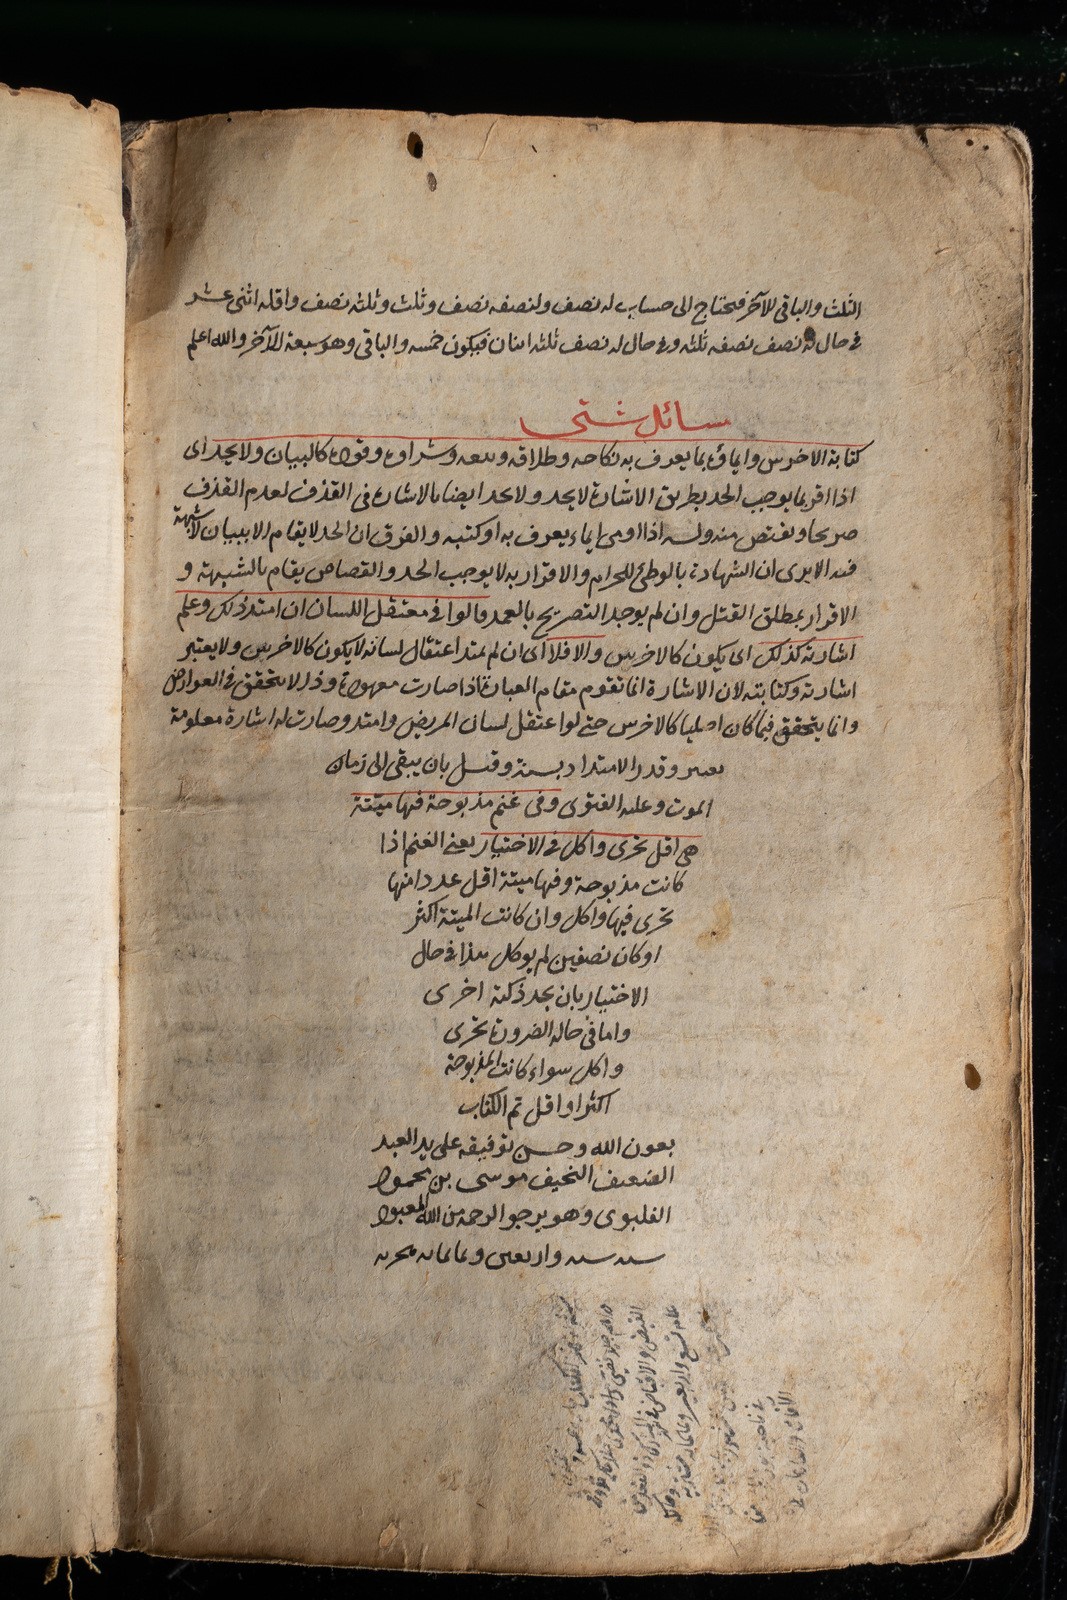 الثلث والباقي للآخر فيحتاج الى حساب له نصف ولنصفه نصف وثلث وثلثه نصف واقله اثنى عشر
في حال له نصف نصفه ثلثه وفي حال له نصف ثلثه اثنان فيكون خمسه والباقي وهو سبعة للآخر والله اعلم
مسائل شتى
كتابة الاخرس وايماؤه بما يعرف به نكاحه وطلاقه وبيعه وشراوه وقوده كالبيان ولا يحد اى
اذا اقر بما يوجب الحد بطريق الاشارة لا يحد ولا يحد ايضا بالاشارة في القذف لعدم القذف
صريحا ويقتص منه وله اذا اومى ايماء يعرف به او كتبه والفرق ان الحد لا يقام الا ببيان لا شبهة
فيه الا يرى ان الشهادة بالوطئ الحرام والاقرار به لا يوجب الحد والقصاص يقام بالشبهة و
الاقرار بمطلق القتل وان لم يوجد التصريح بالعمد قالوا في معتقل اللسان ان امتد ذلك وعلم
اشارته كذلك اى يكون كالاخرس والا فلا اى ان لم يمتد اعتقال لسانه لا يكون كالاخرس ولا يعتبر
اشارته وكتابته لان الاشارة انما تقوم مقام العبارة اذا صارت معهودة وذا لا يتحقق في العوارض
وانما يتحقق فيما كان اصليا كالاخرس حتى لو اعتقل لسان المريض وامتد وصارت له اشارة معلومة
يعتبر وقدر الامتداد بسنة وقيل بان يبقى الى زمان
الموت وعليه الفتوى وفي غنم مذبوحة فيها ميتة
هى اقل تحرى واكل في الاختيار يعنى الغنم اذا
كانت مذبوحة وفيها ميتة اقل عددا منها
تحرى فيها واكل وان كانت الميتة اكثر
او كان نصفين لم يوكل هذا في حال
الاختيار بان يجد ذكية اخرى
واما في حالة الضرورة تحرى
واكل سواء كانت المذبوحة
اكثر او اقل تم الكتاب
بعون الله وحسن توفيقه على يد العبد
الضعيف النحيف موسى بن محمود
وهو يرجو الرحمة من الله المعبود
سنة ست واربعين وثمانمائة هجرية